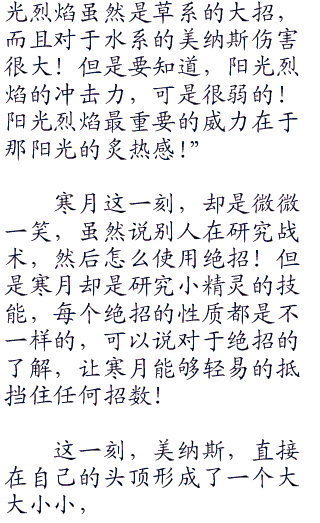 光烈焰虽然是草系的大招，
而且对于水系的美纳斯伤害
很大！但是要知道，阳光烈
焰的冲击力，可是很弱的！
阳光烈焰最重要的威力在于
那阳光的炙热感！”
寒月这一刻，却是微微
一笑，虽然说别人在研究战
术，然后怎么使用绝招！但
是寒月却是研究小精灵的技
能，每个绝招的性质都是不
一样的，可以说对于绝招的
了解，让寒月能够轻易的抵
挡住任何招数！
这一刻，美纳斯，直接
在自己的头顶形成了一个大
大小小，